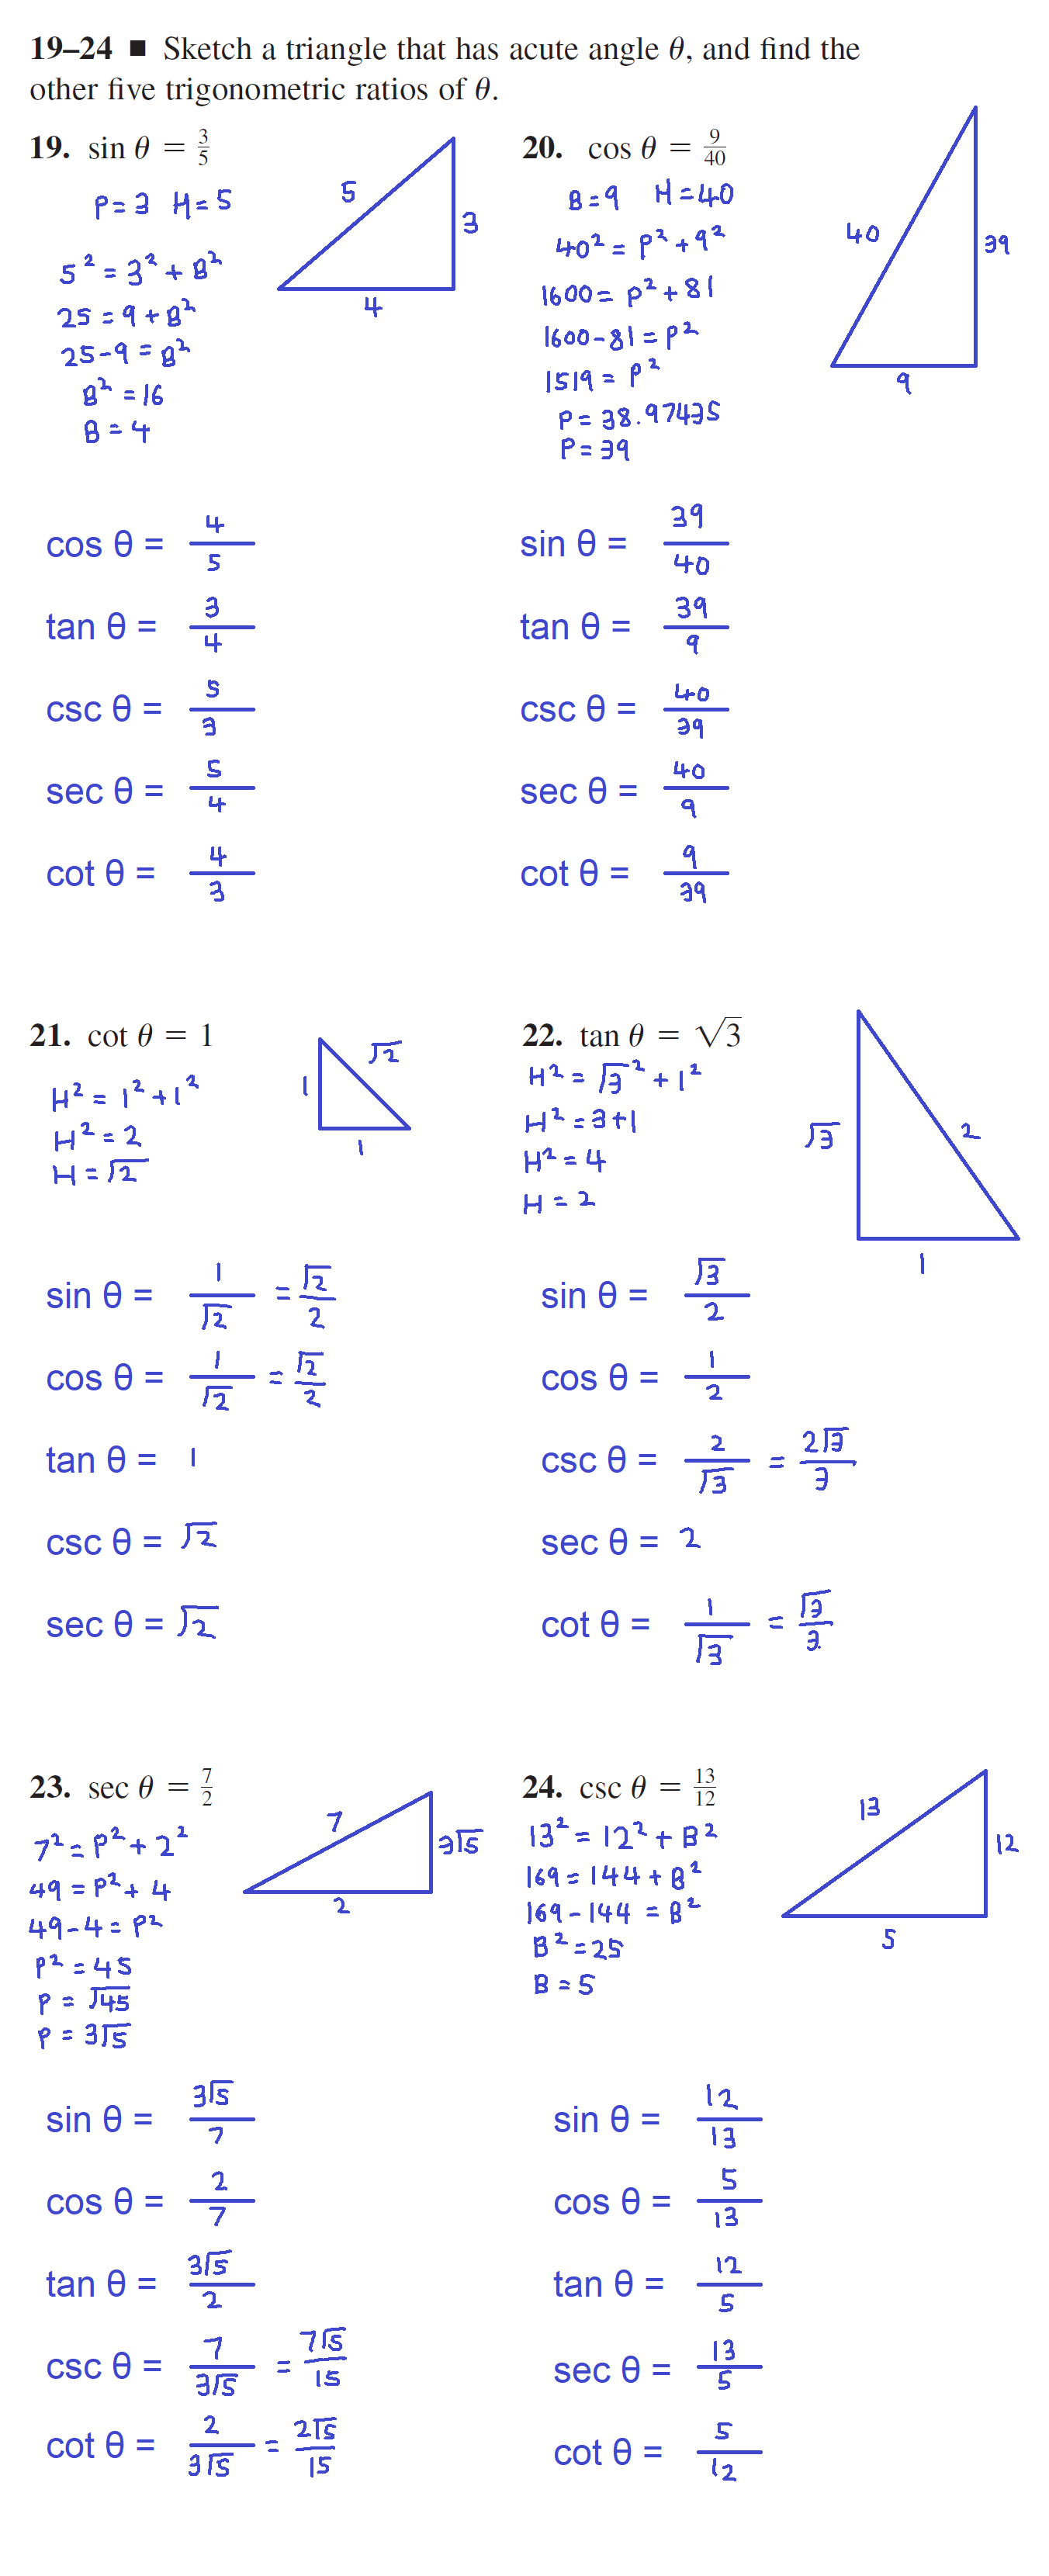 19–24 ■ Sketch a triangle that has acute angle θ, and find the
other five trigonometric ratios of θ.
19. sin θ = 3/5
P=3 H=5
5² = 3² + B²
25 = 9 + B²
25-9 = B²
B² = 16
B = 4
5
3
4
cos θ = 4/5
tan θ = 3/4
csc θ = 5/3
sec θ = 5/4
cot θ = 4/3
20. cos θ = 9/40
B=9 H=40
40² = P² + 9²
1600 = P² + 81
1600-81 = P²
1519 = P²
P = 38.97435
P = 39
40
39
9
sin θ = 39/40
tan θ = 39/9
csc θ = 40/39
sec θ = 40/9
cot θ = 9/39
21. cot θ = 1
H² = 1² + 1²
H² = 2
H = √2
1
√2
1
sin θ = 1/√2 = √2/2
cos θ = 1/√2 = √2/2
tan θ = 1
csc θ = √2
sec θ = √2
22. tan θ = √3
H² = √3² + 1²
H² = 3+1
H² = 4
H = 2
√3
2
1
sin θ = √3/2
cos θ = 1/2
csc θ = 2/√3 = 2√3/3
sec θ = 2
cot θ = 1/√3 = √3/3
23. sec θ = 7/2
7² = P² + 2²
49 = P² + 4
49-4 = P²
P² = 45
P = √45
P = 3√5
7
3√5
2
sin θ = 3√5/7
cos θ = 2/7
tan θ = 3√5/2
csc θ = 7/3√5 = 7√5/15
cot θ = 2/3√5 = 2√5/15
24. csc θ = 13/12
13² = 12² + B²
169 = 144 + B²
169-144 = B²
B² = 25
B = 5
13
12
5
sin θ = 12/13
cos θ = 5/13
tan θ = 12/5
sec θ = 13/5
cot θ = 5/12